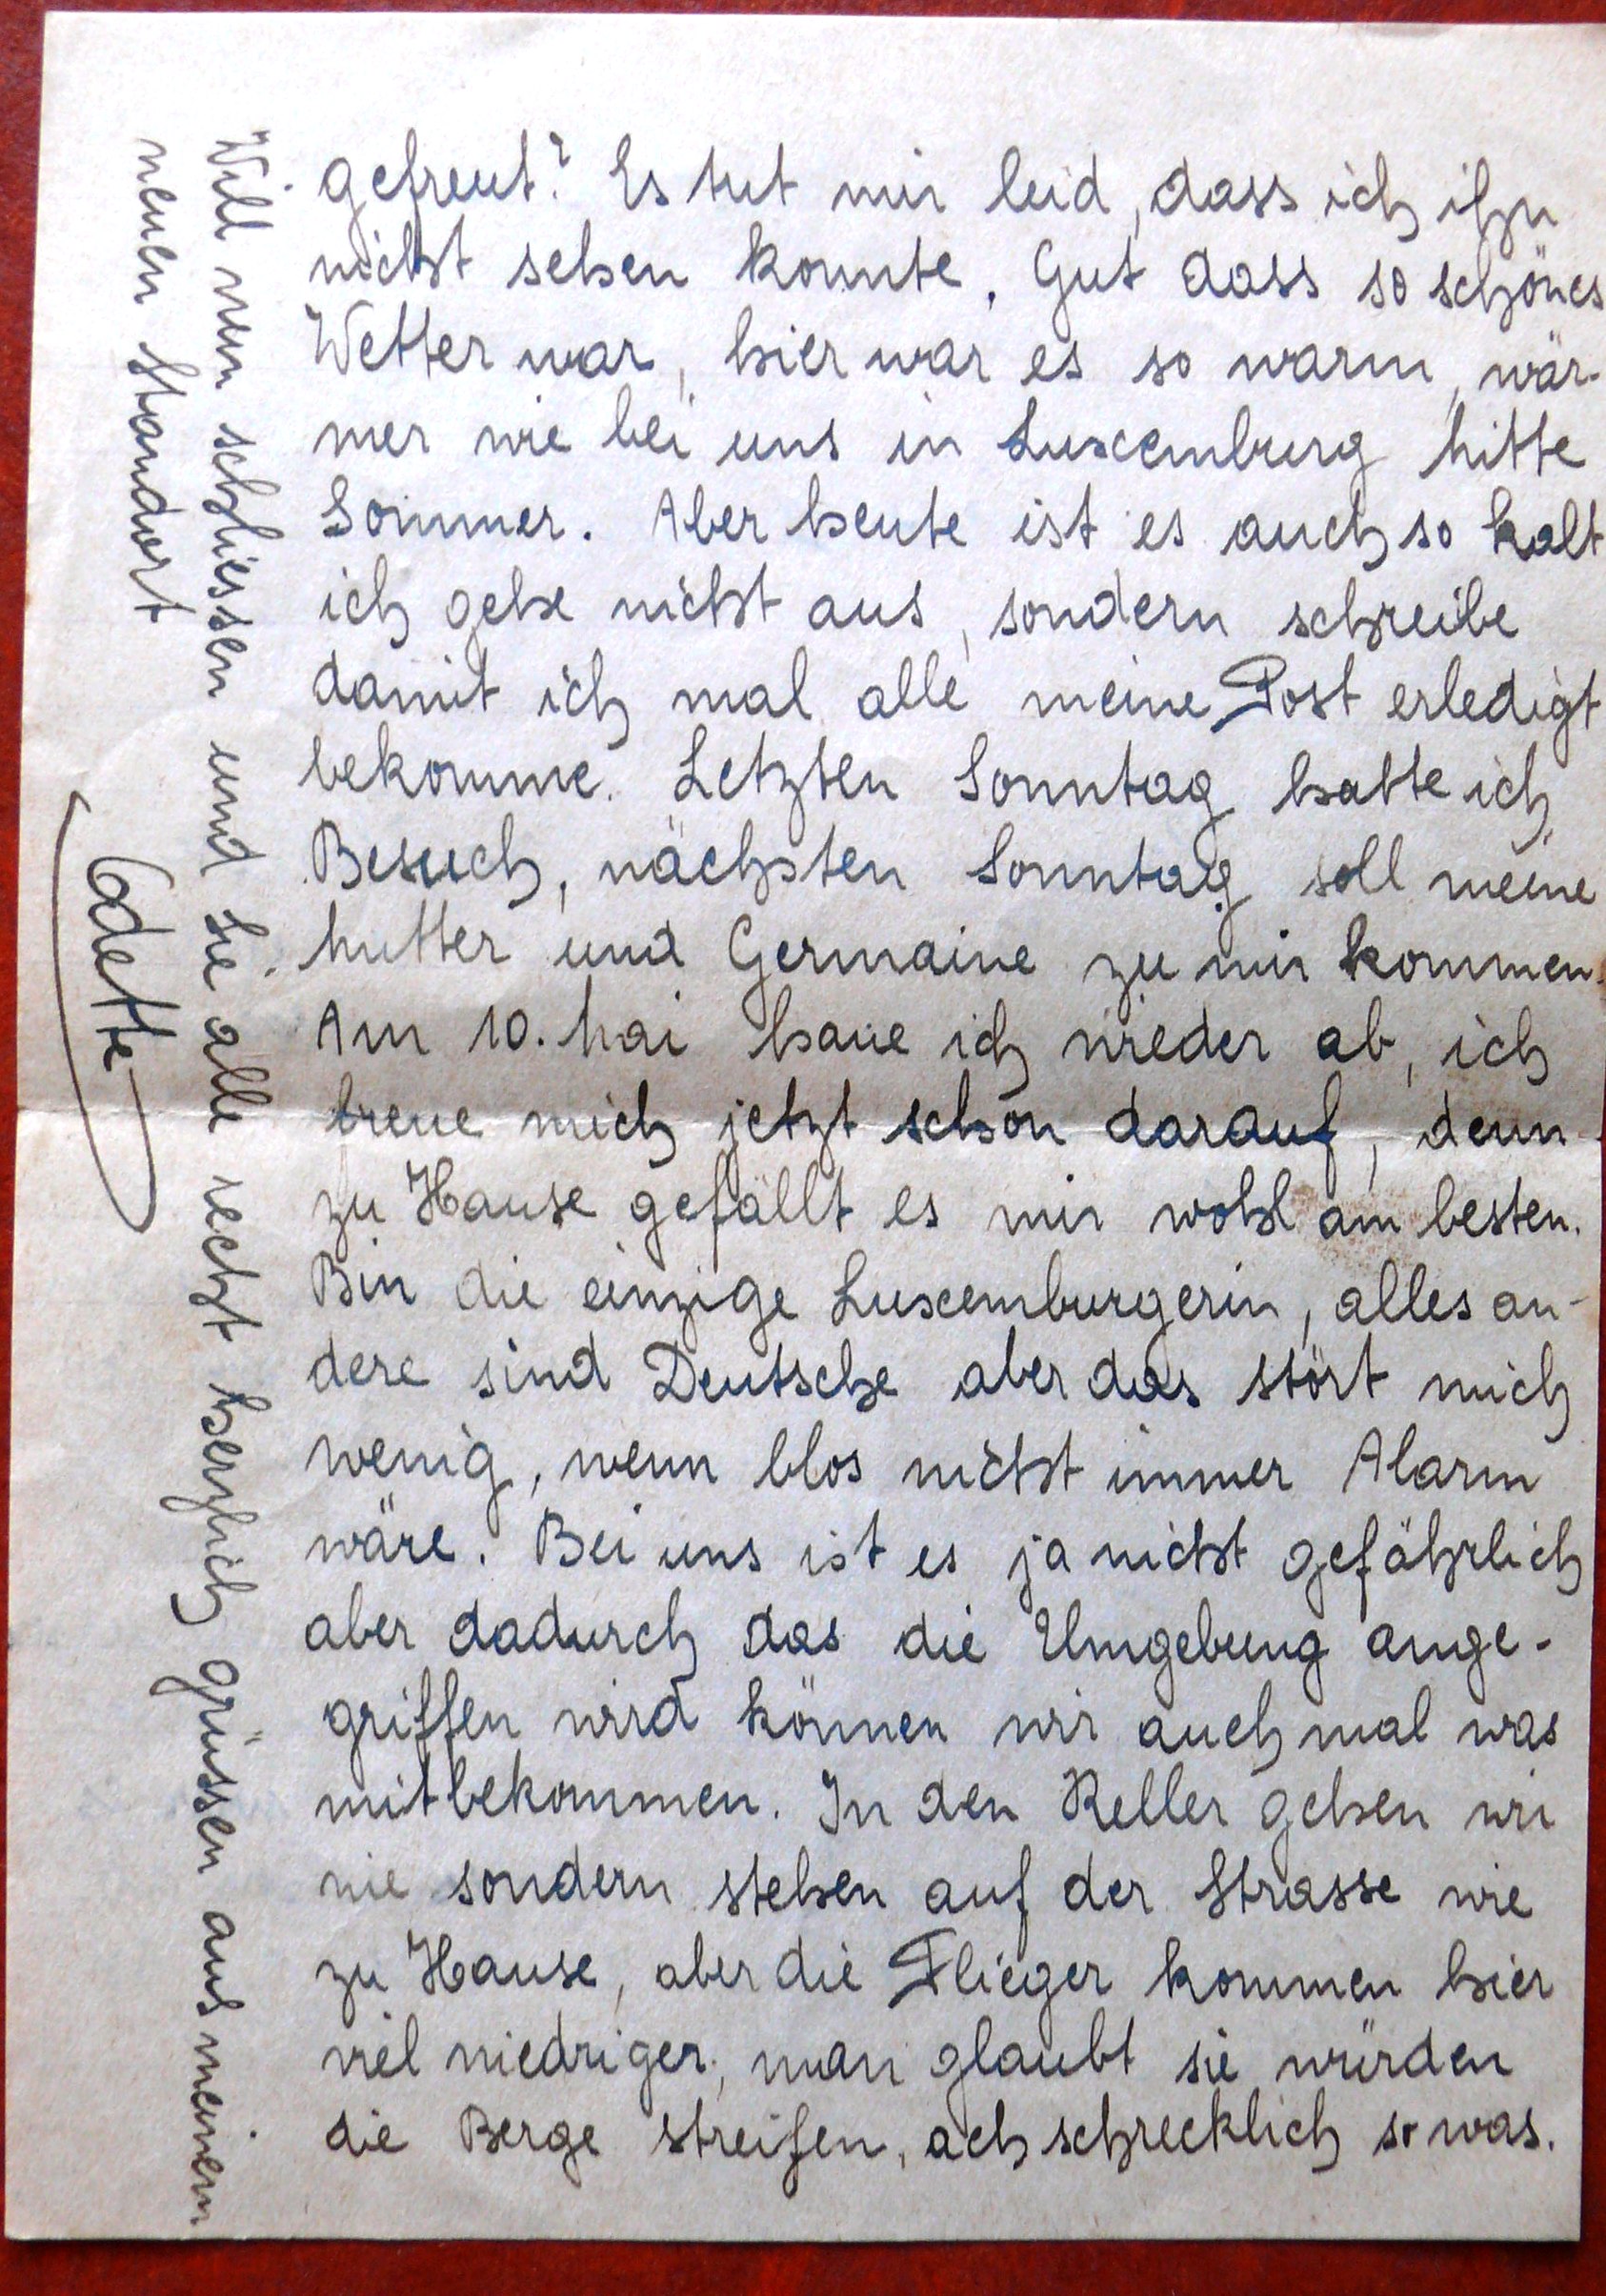 gefreut? Es tut mir leid, dass ich ihn
nicht sehen konnte. Gut dass so schönes
Wetter war, hier war es so warm, wär-
mer wie bei uns in Luxemburg Mitte
Sommer. Aber heute ist es auch so kalt
ich gehe nicht aus, sondern schreibe
damit ich mal alle meine Post erledigt
bekomme. Letzten Sonntag hatte ich
Besuch, nächsten Sonntag soll meine
Mutter und Germaine zu mir kommen.
Am 10. Mai haue ich wieder ab, ich
freue mich jetzt schon darauf, denn
zu Hause gefällt es mir wohl am besten.
Bin die einzige Luxemburgerin, alles an-
dere sind Deutsche aber das stört mich
wenig, wenn blos nicht immer Alarm
wäre. Bei uns ist es ja nicht gefährlich
aber dadurch das die Umgebung ange-
griffen wird können wir auch mal was
mitbekommen. In den Keller gehen wir
nie sondern stehen auf der Strasse wie
zu Hause, aber die Flieger kommen hier
viel niedriger, man glaubt sie würden
die Berge streifen, ach schrecklich so was.
Will nun schliessen und Sie alle recht herzlich grüssen aus meinem
neuen Standort
Odette